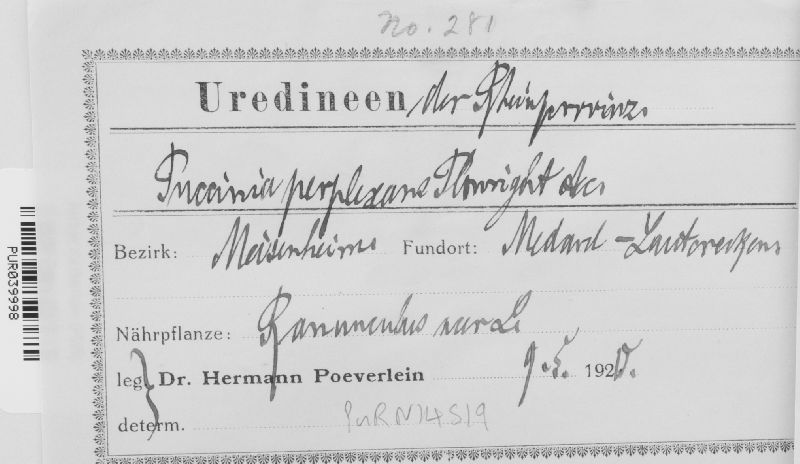 No. 281
Uredineen der Rheinprovinz.
Puccinia perplexans Plowright
Bezirk: Meisenheim. Fundort: Medard - Lauterecken.
PUR039998
Nährpflanze: Ranunculus acer L
leg. Dr. Hermann Poeverlein 9. 5. 192
determ. PuR N14519